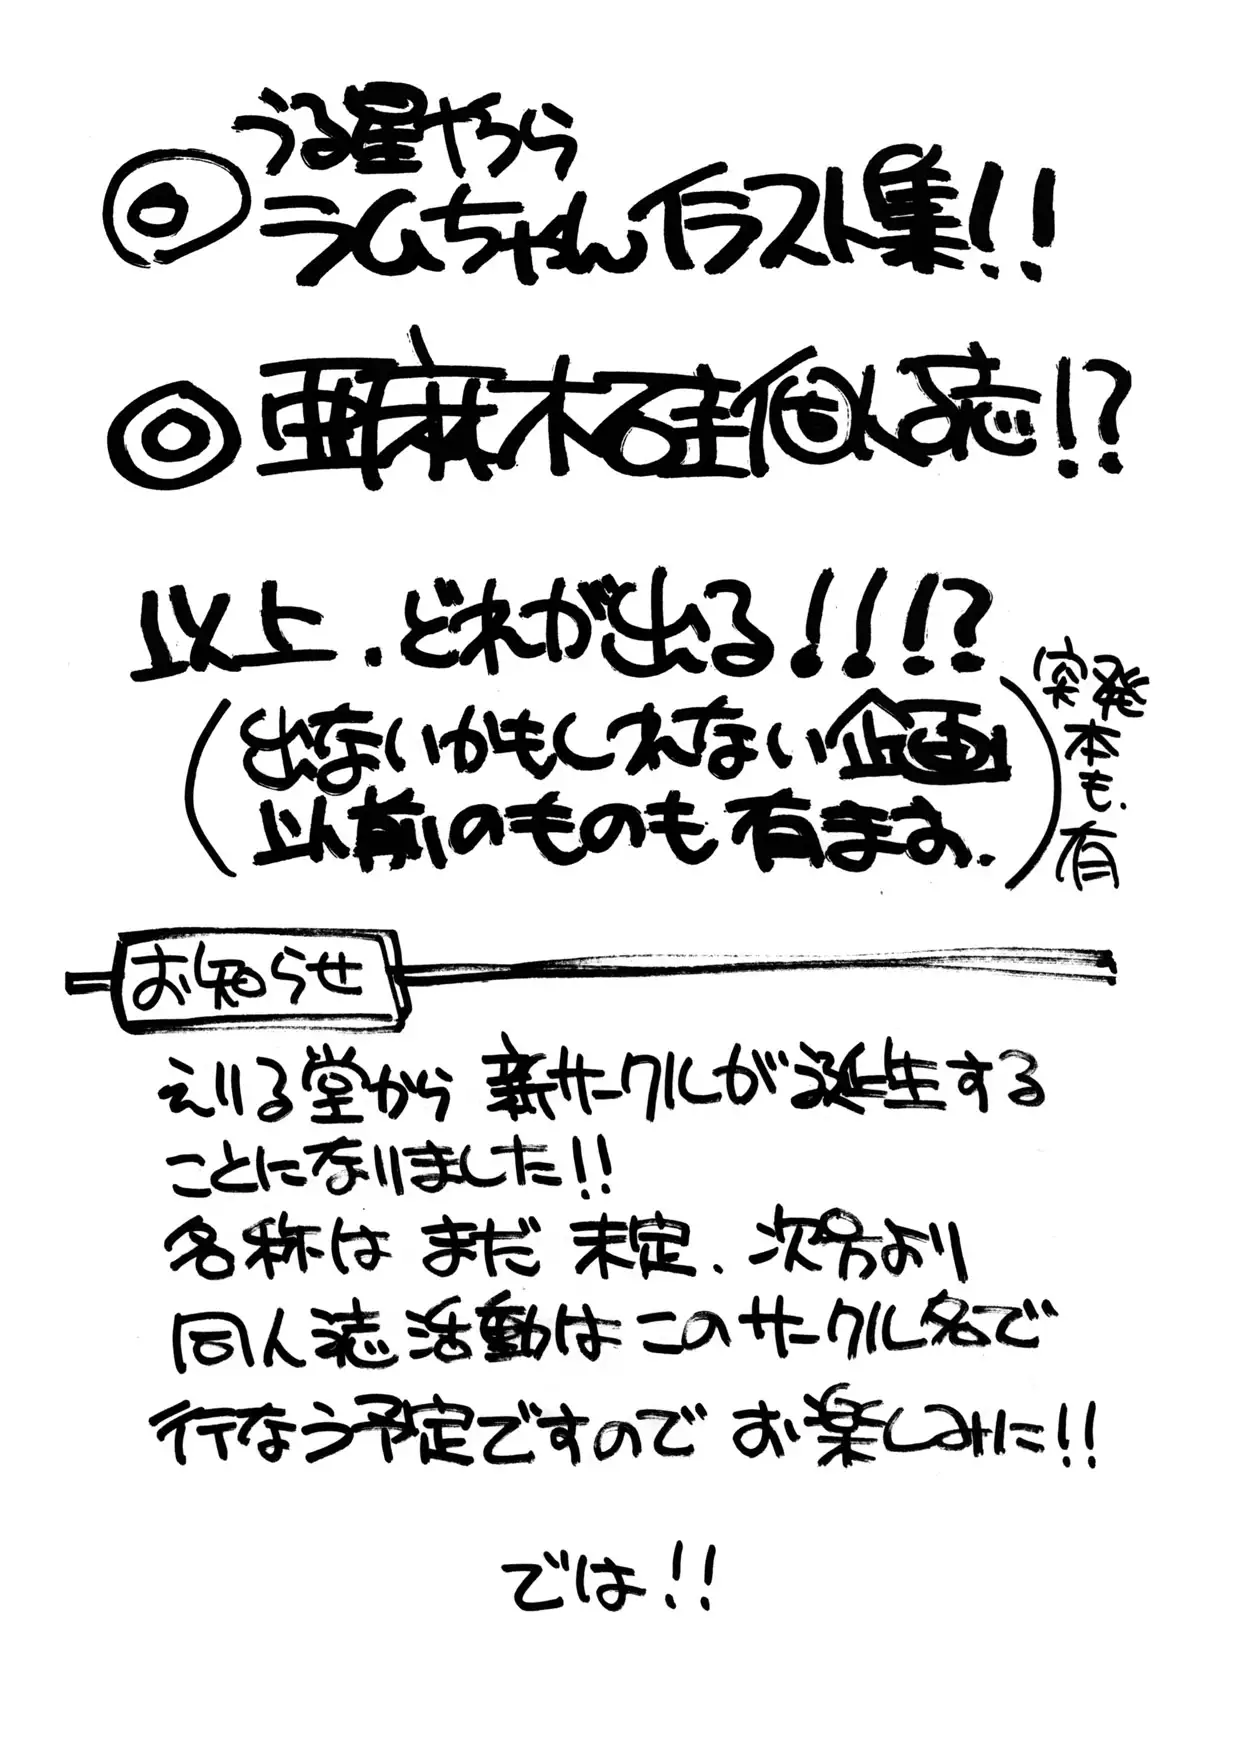 うる星やつら
◎ラムちゃんイラスト集!!
◎亜麻木硅個人誌!?
以上.どれが出る!!!?
(出ないかもしれない企画
以前のものも有ます.)
突発本も.有
お知らせ
えりる堂から 新サークルが誕生する
ことになりました!!
名称は まだ 未定. 次号より
同人誌活動は このサークル名で
行なう予定ですので お楽しみに!!
では!!